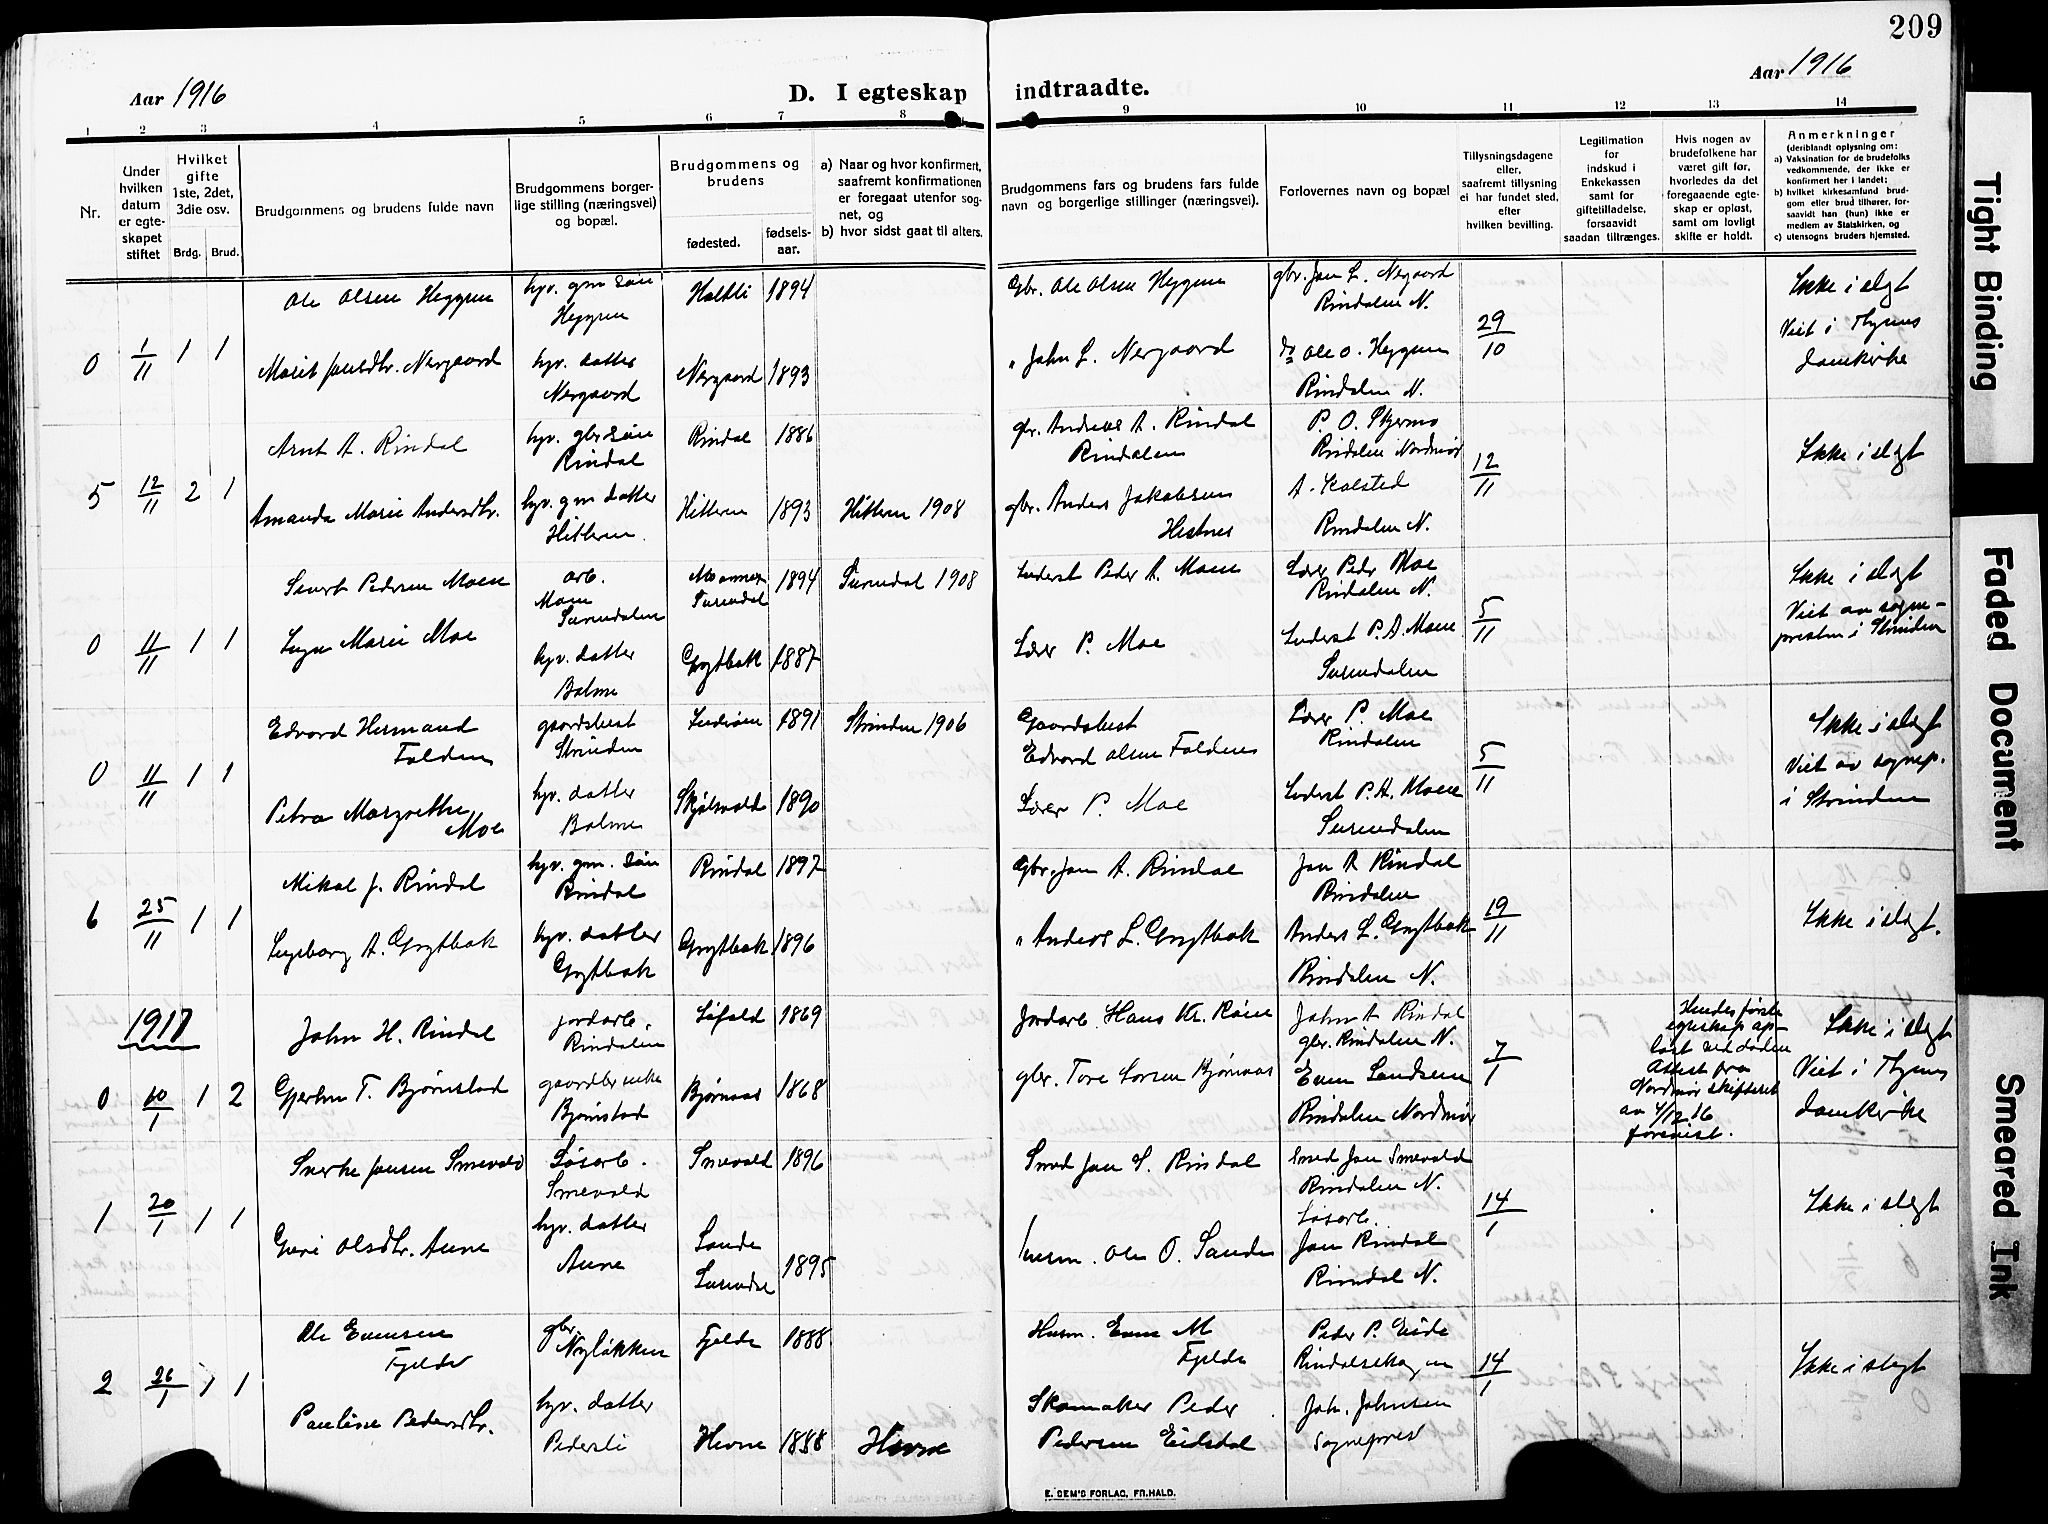 209
Aar 1916
D. I egteskap indtraadte.
Aar 1916
1 2 3 4 5 6 7 8 9 10 11 12 13 14
Nr.
Under hvilken datum er egteskapet stiftet
Hvilket gifte 1ste, 2det, 3die osv.
Brdg. Brud.
Brudgommens og brudens fulde navn
Brudgommens borgerlige stilling (næringsvei) og bopæl.
Brudgommens og brudens
fødested.
fødselsaar.
a) Naar og hvor konfirmert, saafremt konfirmationen er foregaat utenfor sognet, og
b) hvor sidst gaat til alters.
Brudgommens fars og brudens fars fulde navn og borgerlige stillinger (næringsvei).
Forlovernes navn og bopæl
Tillysningsdagene eller, saafremt tillysning ei har fundet sted, efter hvilken bevilling.
Legitimation for indskud i Enkekassen samt for giftetilladelse, forsaavidt saadan tiltrænges.
Hvis nogen av brudefolkene har været gift før, hvorledes da det foregaaende egteskap er opløst, samt om lovligt skifte er holdt.
Anmerkninger
(deriblandt oplysning om:
a) Vaksination for de brudefolks vedkommende, der ikke er konfirmert her i landet;
b) hvilket kirkesamfund brudgom eller brud tilhører, forsaavidt han (hun) ikke er medlem av Statskirken, og
c) utensogns bruders hjemsted.
0 1/11 1 1
Ole Olsen Heggem hpv. gm søn Heggem 1894
Gbr. Ole Olsen Heggem
gbr. Jon L. Nergaard Rindalen N.
29/10
Ikke i slegt
Viet i
domkirke
Marit Jonsdtr. Nergaard hpv. datter Nergaard Nergaard 1893
" John L. Nergaard
do Ole O. Heggem Rindalen N.
5 12/11 2 1
Arnt A. Rindal hpv. gbr søn Rindal Rindal 1886
gbr. Andreas A. Rindal Rindalen
P. O. Skjermo Rindalen Nordmør
12/11
Ikke i slegt
Amanda Marie Andersdtr. hpv. gm datter Hitteren. Hitteren 1893 Hitteren 1908
gbr. Anders Jakobsen Hestnes
A. Kalsted Rindalen N.
0 11/11 1 1
Sivert Pedersen Moen arb. Moen Surendalen Surendal 1894 Surendal 1908
Inderst Peder A. Moen
Lærer Peder Moe Rindalen N.
5/11
Ikke i slegt
Viet av sogne-
presten i Strinden
Inga Marie Moe hpv. datter Bolme Grytbak 1887
Lærer P. Moe
Inderst P. A. Moen Surendalen
0 11/11 1 1
Edvard Hermand Falden gaardsbest Strinden Inderøen 1891 Strinden 1906
Gaardsbest Edvard Olsen Faldens
Lærer P. Moe Rindalen
5/11
Ikke i slegt
Viet av sognep.
i Strinden
Petra Margrethe Moe hpv. datter Bolme Skjølsvold 1890
Lærer P. Moe
Inderst P. A. Moen Surendalen
6 25/11 1 1
Mikal J. Rindal hpv. gm. søn Rindal Rindal 1897
Gbr. Jon A. Rindal
Jon A Rindal Rindalen
19/11
Ikke i slegt.
Ingeborg A. Grytbak hpv. datter Grytbak Grytbak 1896
" Anders L. Grytbak
Anders L. Grytbak Rindalen N.
1917
0 10/1 1 2
John H. Rindal jordarb. Rindalen Løfald 1869
Jordarb. Hans Kr. Røen
John A Rindal gbr. Rindalen N.
7/1
Hendes første
egteskap op-
løst ved døden
Attest fra
Nordmør skifteret
av 4/12 16
forevist.
Ikke i slegt
Viet i
domkirke
Gjertru T. Bjørnstad gaardbr enke Bjørnstad Bjørnaas 1868
gbr. Tore Larsen Bjørnaas
Even Landsem Rindalen Nordmør
1 20/1 1 1
Sverke Jonsen Smevold Løsarb. Smevold Smevold 1896
Smed Jon S. Rindal
Smed Jon Smevold Rindalen N.
14/1
Ikke i slegt
Guri Olsdtr. Aune hpv. datter Aune Sande Surendal 1895
husm. Ole O. Sande
Løsarb. Jon Rindal Rindal N.
2 26/1 1 1
Ole Evensen Fjelde gbr. Nyløkken Fjelde 1888
Husm. Even M Fjelde
Peder P. Eide Rindalsskogen
14/1
Ikke i slegt
Pauline Pedersdtr. hpv. datter Pedersli Hevne 1888 Hevne
Skomaker Peder Pedersen Eidsdal
Joh. Johnsen Sogneprest
E. SEM'S FORLAG, FR.HALD.
Tight Binding
Faded Document
Smeared Ink